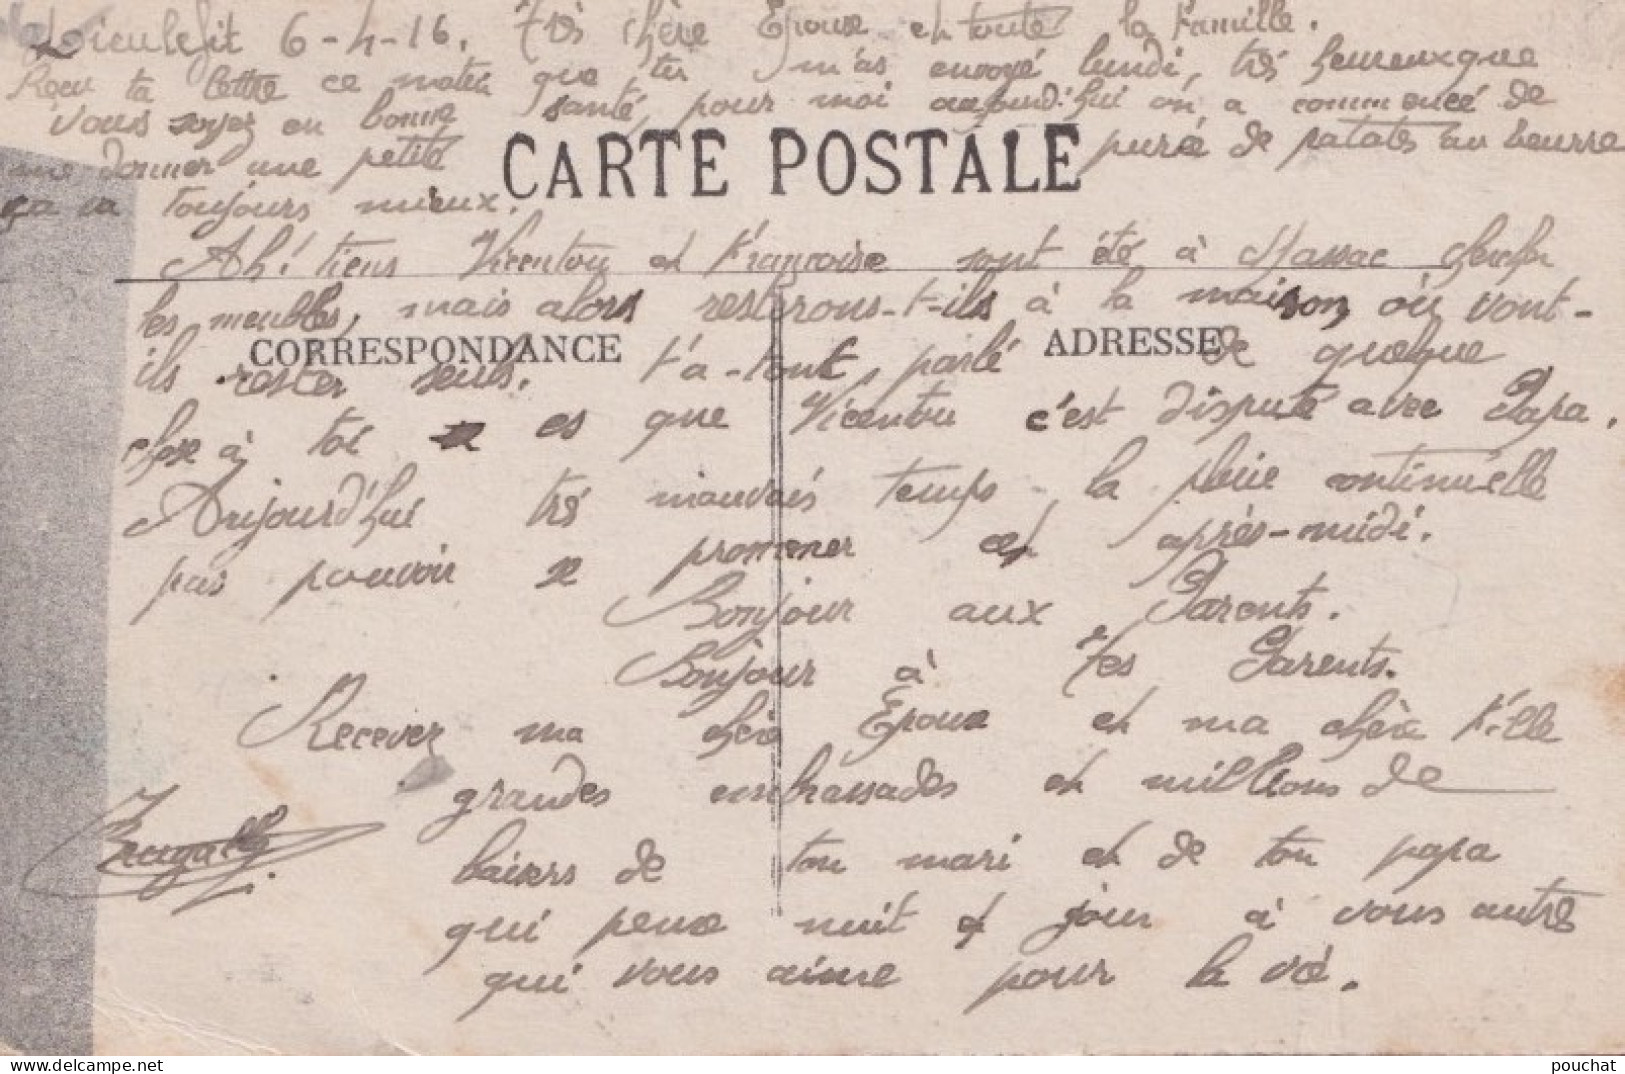 Dieulefit 6-4-16. Très chère Epouse et toute la Famille.
Reçu ta lettre ce matin que tu m'as envoyé lundi, très heureux que
vous soyez en bonne santé, pour moi aujourd'hui on a commencé de
me donner une petite purée de patates au beurre
ça va toujours mieux.
CARTE POSTALE
Ah! tiens Vicentou et Françoise sont été à Massac chercher
les meubles, mais alors resterons-t-ils à la maison où vont-
ils rester seuls. t'a-tont parlé de quelque
CORRESPONDANCE
ADRESSE
chose à toi es que Vicentou c'est disputé avec Papa.
Aujourd'hui très mauvais temps la pluie continuelle
pas pouvoir se promener cet après-midi.
Bonjour aux Parents.
Bonjour à Tes Parents.
Recevez ma chère Epouse et ma chère Fille
grandes embrassades et millions de
baisers de ton mari et de ton papa
qui pense nuit et jour à vous autres
qui vous aime pour la vie.
pouchat